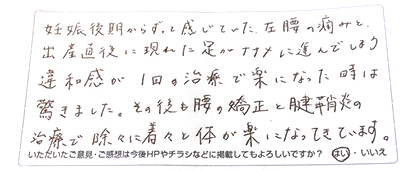 妊娠後期からずっと感じていた、左腰の痛みと、
出産直後に現れた足がナナメに進んでしまう
違和感が1回の治療で楽になった時は
驚きました。その後も腰の矯正と腱鞘炎の
治療で除々に着々と体が楽になってきています。
いただいたご意見・ご感想は今後HPやチラシなどに掲載してもよろしいですか？ はい・いいえ